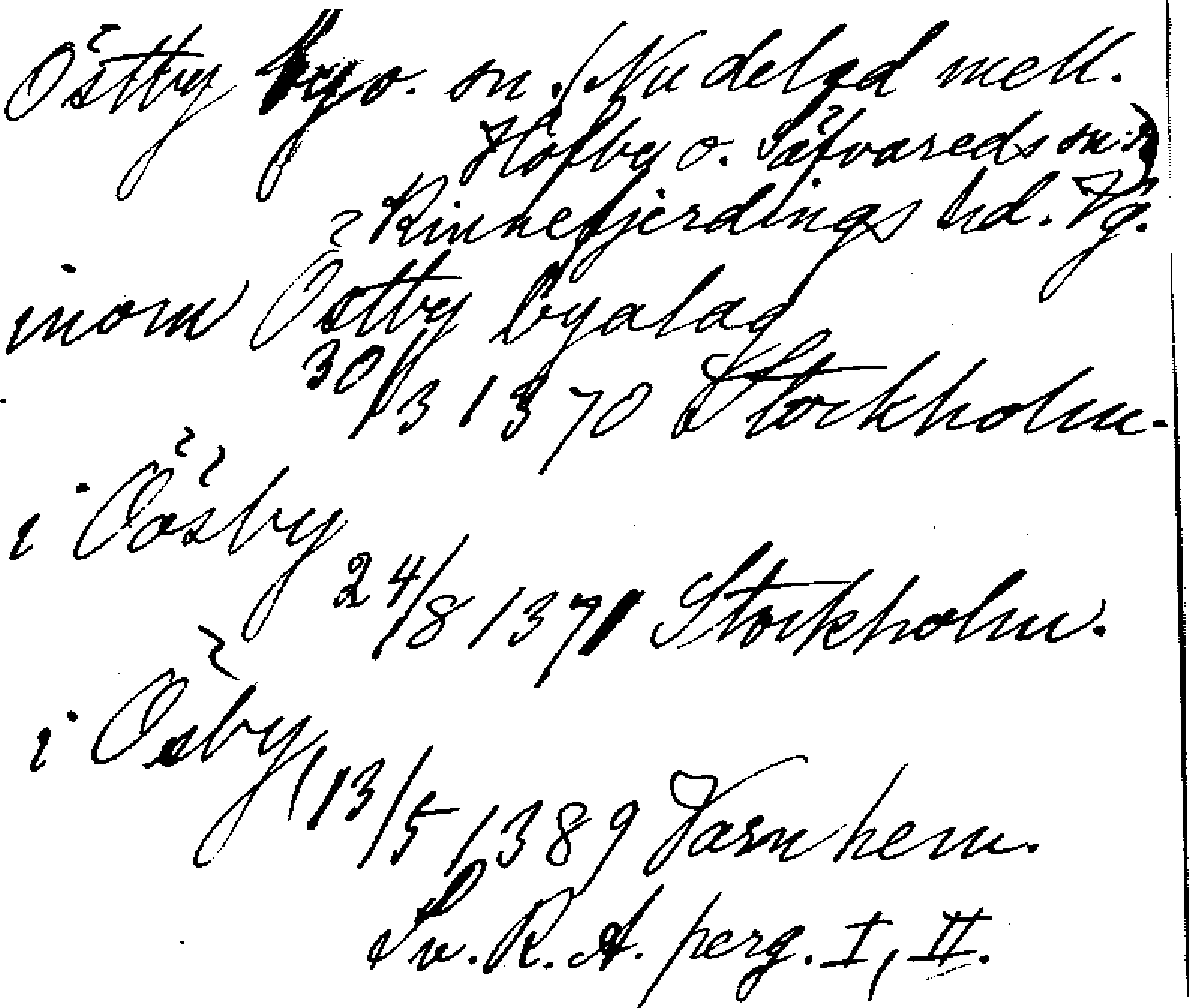 Östby byo. sn. (Nu delad mell.
Höfby o. Säfvareds sn:r)
Kinnefjerdings hd. Vg.
inom Östby byalag
30/3 1370 Stockholm.
i Öösby
24/8 1371 Stockholm.
i Ösby
13/5 1389 Varnhem.
Sv. R. A. perg. I, II.